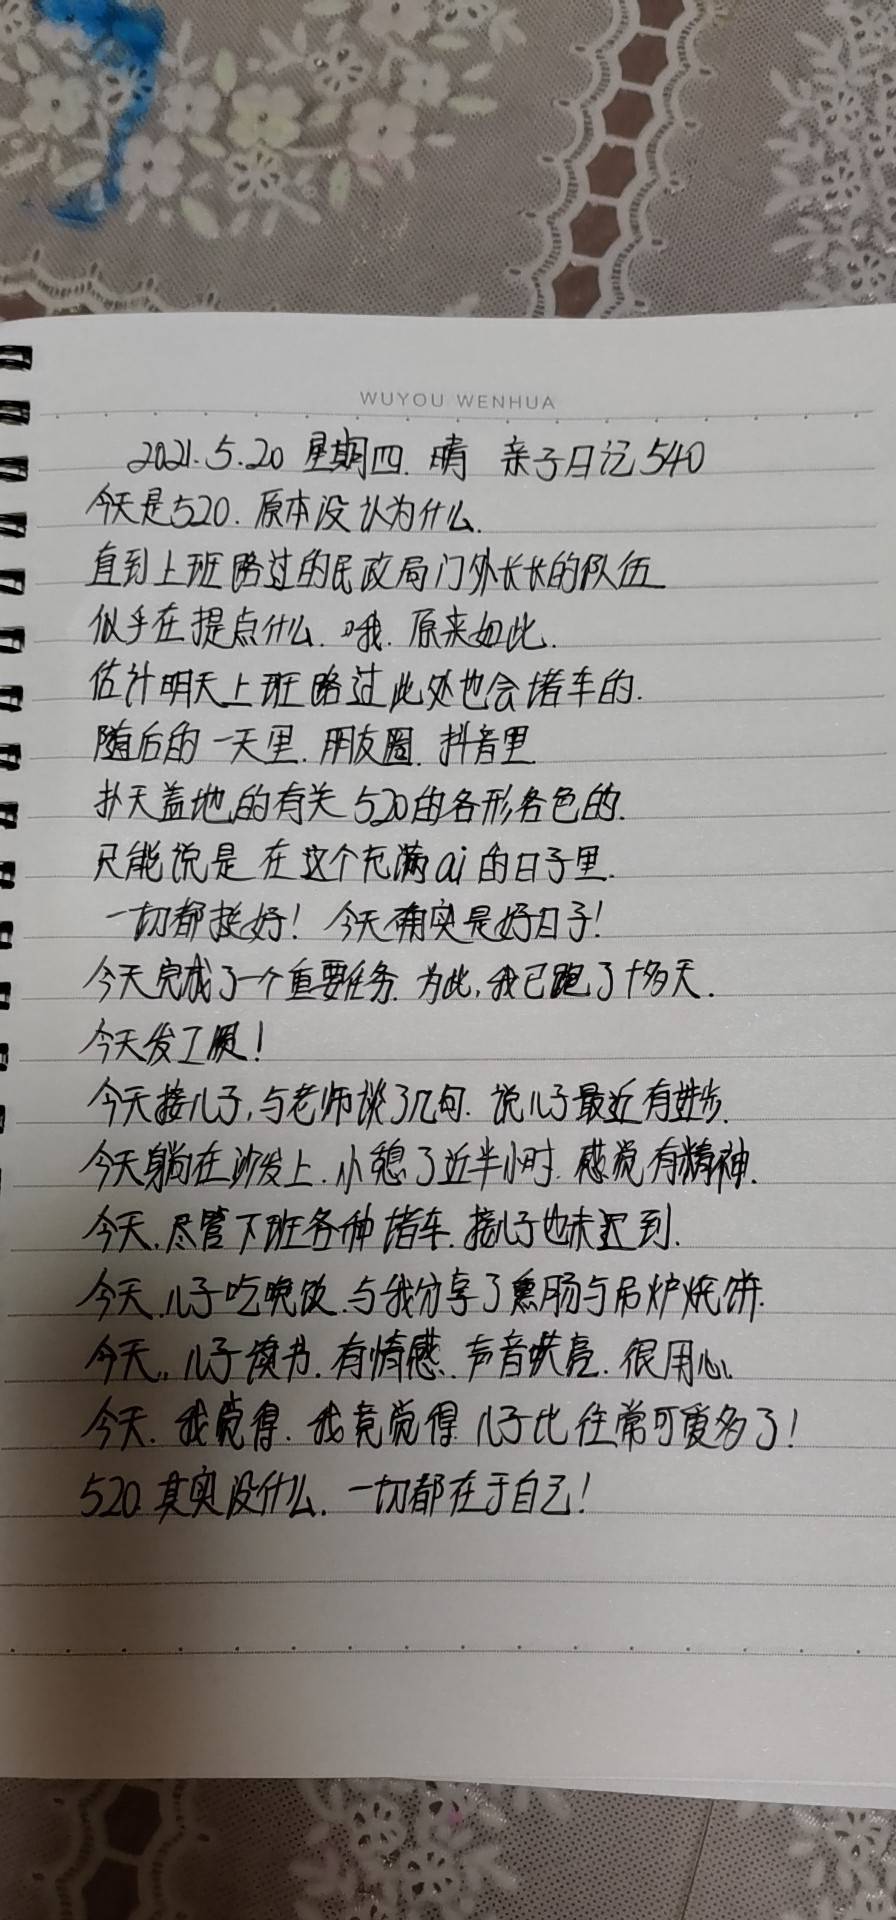 WUYOU WENHUA
2021.5.20 星期四. 晴 亲子日记540
今天是520. 原本没认为什么.
直到上班路过的民政局门外长长的队伍
似乎在提点什么. 哦. 原来如此.
估计明天上班路过此处也会堵车的.
随后的一天里. 朋友圈. 抖音里
扑天盖地的有关520的各形各色的.
只能说是在这个充满ai的日子里.
一切都挺好! 今天确实是好日子!
今天完成了一个重要任务. 为此, 我已跑了十多天.
今天发工资!
今天接儿子, 与老师谈了几句. 说儿子最近有进步.
今天躺在沙发上. 小憩了近半小时. 感觉有精神.
今天. 尽管下班各种堵车. 接儿子也未迟到.
今天. 儿子吃晚饭. 与我分享了熏肠与吊炉烧饼.
今天. 儿子读书. 有情感. 声音洪亮. 很用心.
今天. 我觉得. 我竟觉得儿子比往常可爱多了!
520. 其实没什么. 一切都在于自己!